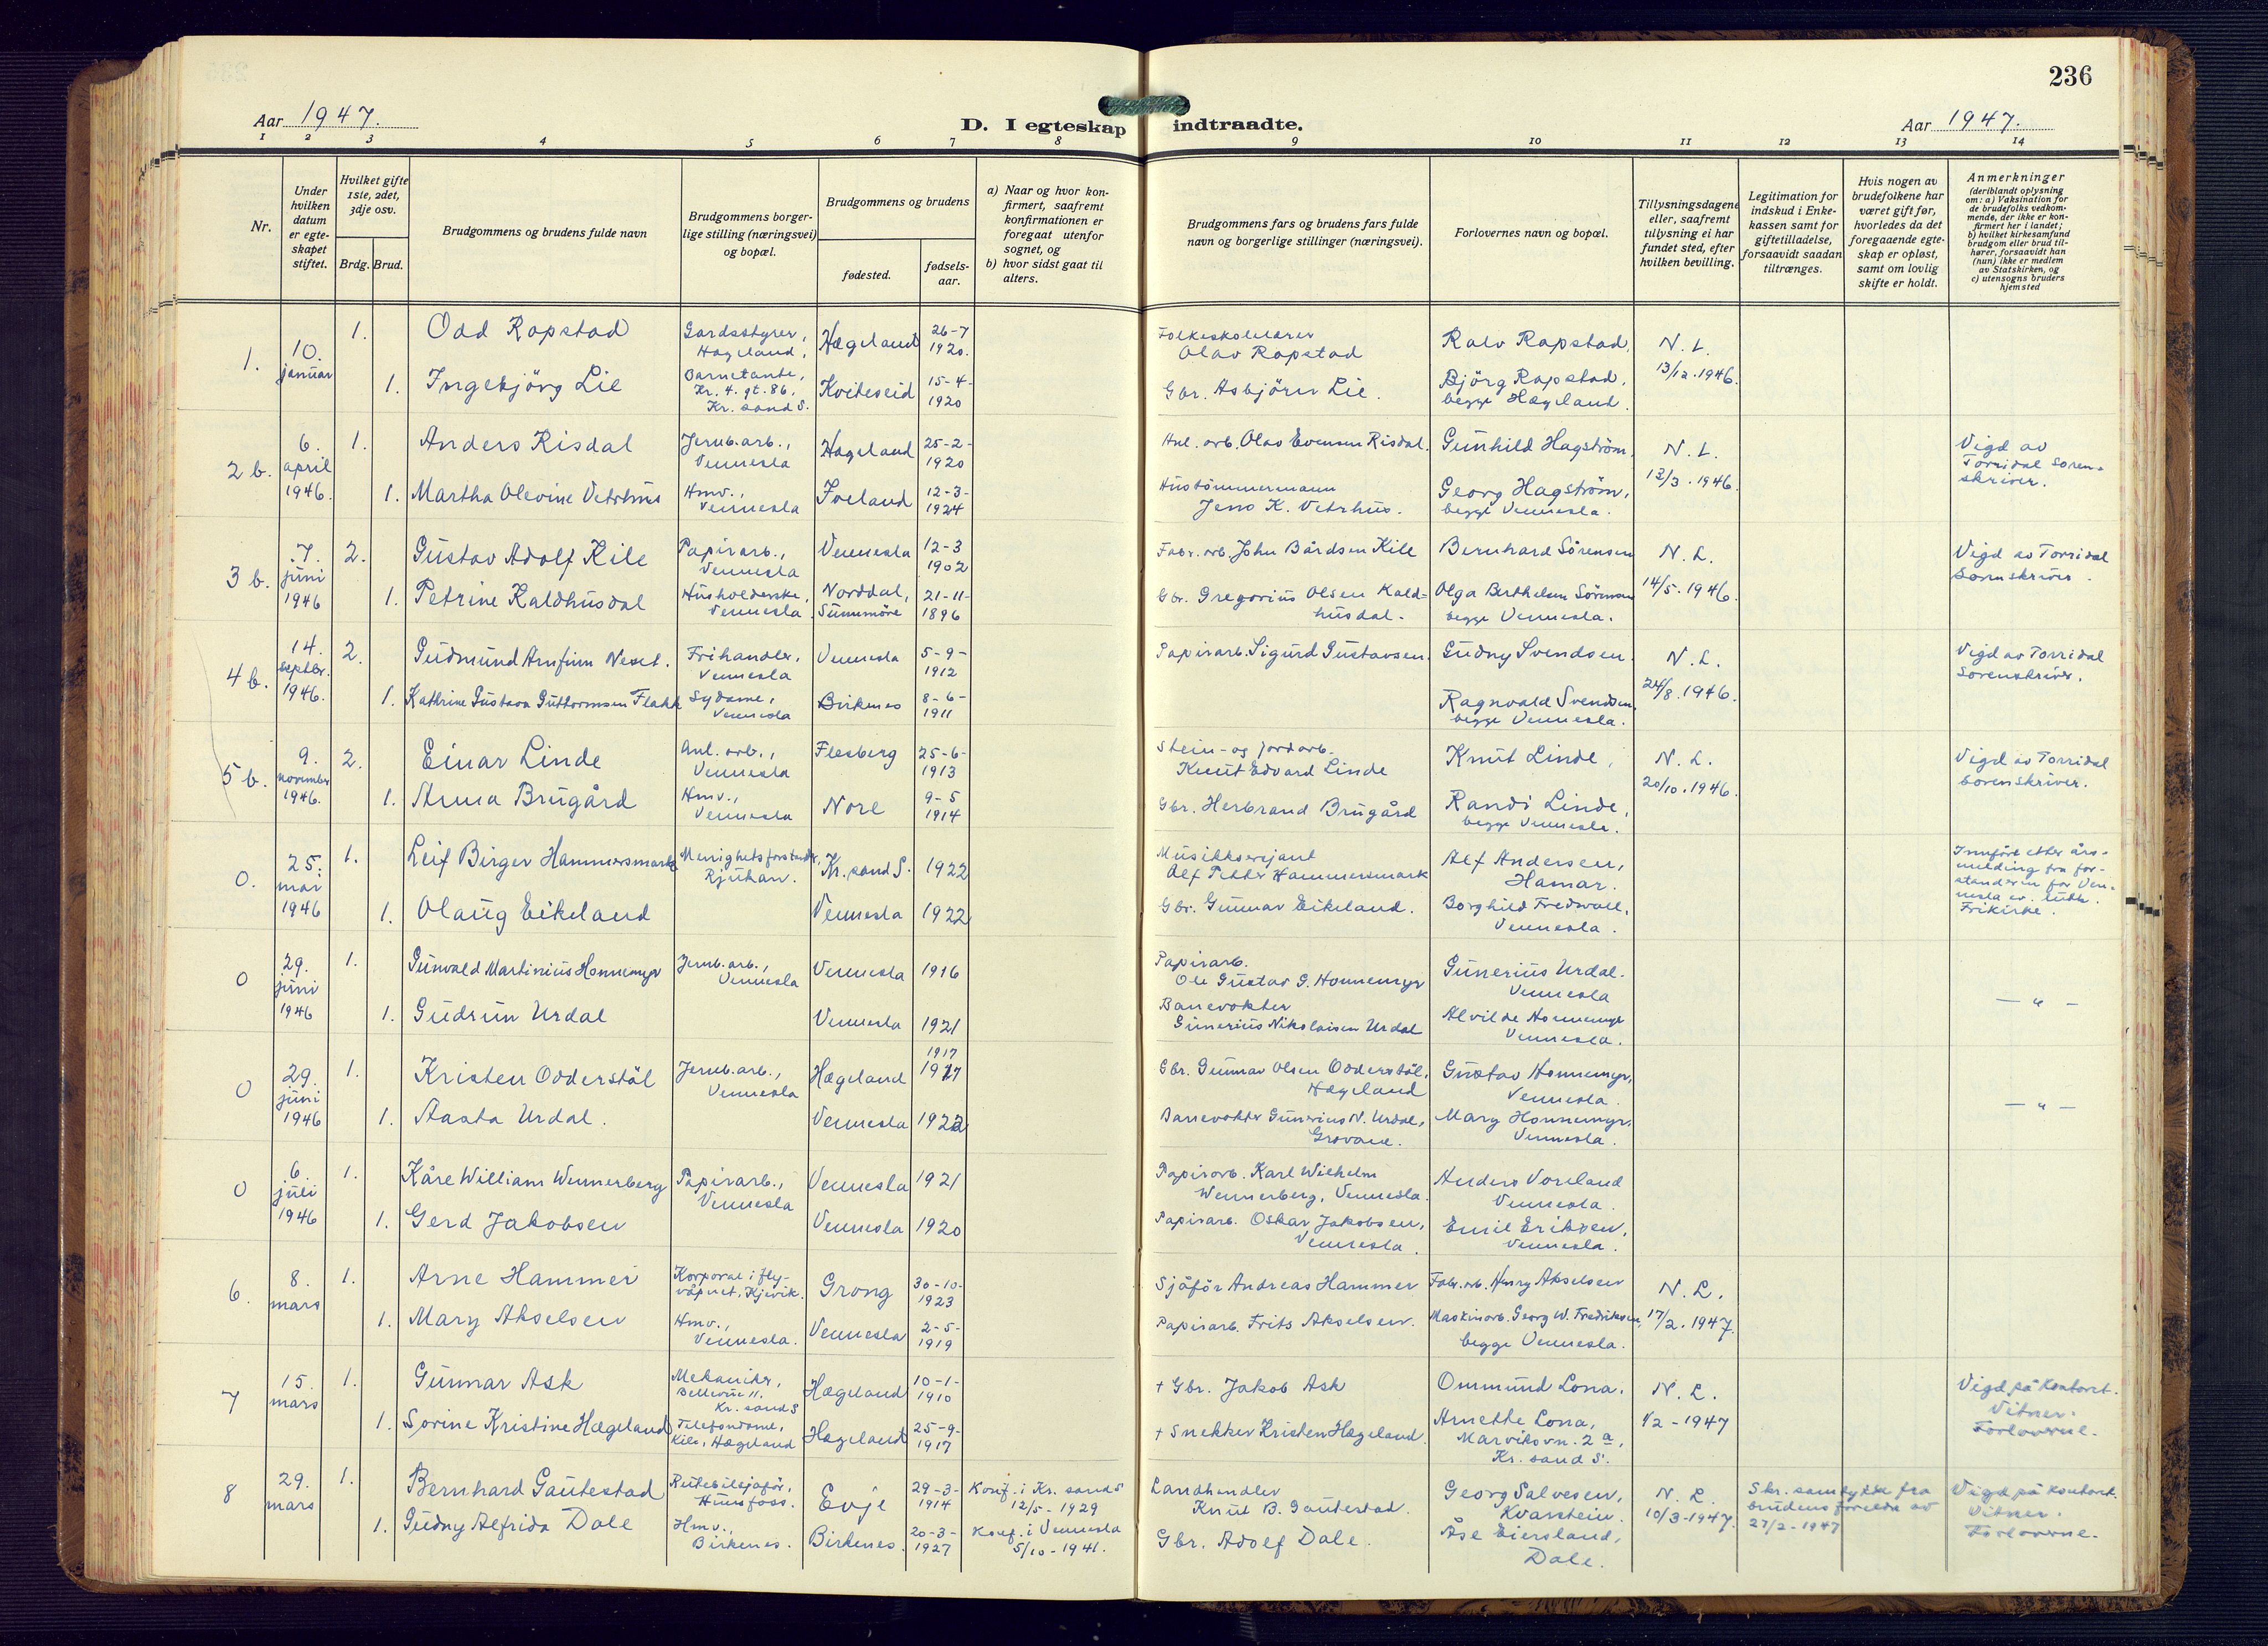 236
Aar 1947.
D. I egteskap indtraadte.
Aar 1947.
1 2 3 4 5 6 7 8 9 10 11 12 13 14
Nr.
Under hvilken datum er egteskapet stiftet.
Hvilket gifte 1ste, 2det, 3dje osv.
Brdg. Brud.
Brudgommens og brudens fulde navn
Brudgommens borgerlige stilling (næringsvei) og bopæl.
Brudgommens og brudens
fødested.
fødselsaar.
a) Naar og hvor konfirmert, saafremt konfirmationen er foregaat utenfor sognet, og
b) hvor sidst gaat til alters.
Brudgommens fars og brudens fars fulde navn og borgerlige stillinger (næringsvei).
Forlovernes navn og bopæl.
Tillysningsdagene eller, saafremt tillysning ei har fundet sted, efter hvilken bevilling.
Legitimation for indskud i Enkekassen samt for giftetilladelse, forsaavidt saadan tiltrænges.
Hvis nogen av brudefolkene har været gift før, hvorledes da det foregaaende egteskap er opløst, samt om lovlig skifte er holdt.
Anmerkninger
(deriblandt oplysning om: a) Vaksination for de brudefolks vedkommende, der ikke er konfirmert her i landet;
b) hvilket kirkesamfund brudgom eller brud tilhører, forsaavidt han (hun) ikke er medlem av Statskirken, og
c) utensogns bruders hjemsted
1. 10. januar 1. Odd Rapstad Gardsstyrer, Hægeland, Hægeland 26-7 1920. Folkeskolelærer Olav Rapstad Ralv Rapstad, N. L.
1. Ingebjörg Lie Barnetante, Kr. 4. gt. 86, Kr. sand S. Kviteseid 15-4-1920 Gbr. Asbjörn Lie. Björg Rapstad, begge Hægeland. 13/12. 1946.
2 b. 6. april 1946. 1. Anders Risdal Jernb.arb., Vennesla Hægeland 25-2-1920 Anl. arb. Olav Evensen Risdal. Gunhild Hagström, N. L. Vigd av Torridal sorenskriver.
1. Martha Olevine Vetrhus Hmv., Vennesla Iveland 12-3-1924 Hustömmermann Jens K. Vetrhus. Georg Hagström, begge Vennesla. 13/3. 1946.
3 b. 7. juni 1946 2. Gustav Adolf Kile Papirarb., Vennesla Vennesla 12-3 1902 Fabr. arb. John Bårdsen Kile Bernhard Sörensen N. L. Vigd av Torridal Sorenskriver.
1. Petrine Kaldhusdal Husholderske, Vennesla. Norddal, Sunnmöre 21-11-1896 Gbr. Gregorius Olsen Kaldhusdal. Olga Berthelsen Sörensen begge Vennesla. 14/5. 1946.
4 b. 14. septbr. 1946. 2. Gudmund Arnfinn Neset. Frihandler, Vennesla Vennesla 5-9-1912 Papirarb. Sigurd Gustavsen. Gudny Svendsen. N. L. Vigd av Torridal Sorenskriver.
1. Kathrine Gustava Guttormsen Flakk Sydame, Vennesla Birkenes 8-6-1911 Ragnvald Svendsen, begge Vennesla. 24/8. 1946.
5 b. 9. november 1946. 2. Einar Linde Anl. arb., Vennesla Flesberg 25-6-1913 Stein- og jordarb. Knut Edvard Linde Knut Linde, N. L. Vigd av Torridal sorenskriver.
1. Anna Brugård Hmv., Vennesla Nore 9-5 1914 Gbr. Herbrand Brugård Randi Linde, begge Vennesla. 20/10. 1946.
0. 25. mai 1946 1. Leif Birger Hammersmark Menighetsforstander, Rjukan. Kr. sand S. 1922 Musikksersjant Alf Petter Hammersmark Alf Andersen, Hamar. Innfört etter årsmelding fra forstanderen for Vennesla ev. luth. Frikirke.
1. Olaug Eikeland Vennesla 1922 Gbr. Gunnar Eikeland. Borghild Fredwall, Vennesla.
0 29. juni 1946 1. Gunvald Martinius Honnemyr Jernb. arb., Vennesla Vennesla 1916 Papirarb. Ole Gustav G. Honnemyr Gunerius Urdal. Vennesla — " —
1. Gudrun Urdal Vennesla 1921 Banevokter Gunerius Nikolaisen Urdal Alvilde Honnemyr Vennesla.
0 29. juni 1946 1. Kristen Odderstöl Jernb. arb., Vennesla Hægeland 1917 1917 Gbr. Gunnar Olsen Odderstöl, Hægeland Gustav Honnemyr, Vennesla. — " —
1. Aasta Urdal. Vennesla 1922 Banevokter Gunerius N. Urdal, Grovane. Mary Honnemyr, Vennesla.
0 6. juli 1946 1. Kåre William Wennerberg Papirarb., Vennesla Vennesla 1921 Papirarb. Karl Wilhelm Wennerberg, Vennesla. Anders Voreland Vennesla.
1. Gerd Jakobsen Vennesla 1920 Papirarb. Oskar Jakobsen, Vennesla. Emil Eriksen, Vennesla.
6. 8. mars 1. Arne Hammer Korporal i flyvåpnet, Kjevik. Grong 30-10-1923 Sjåför Andreas Hammer Fabr. arb. Henry Akselsen N. L.
1. Mary Akselsen Hmv., Vennesla. Vennesla 2-5-1919 Papirarb. Frits Akselsen. Maskinarb. Georg W. Fredriksen, begge Vennesla. 17/2. 1947.
7 15. mars 1. Gunnar Ask Mekaniker, Bellevue 11. Kr. sand S Hægeland 10-1-1910 + Gbr. Jakob Ask Ommund Lona. N. L. Vigd på kontoret. Vitner: Forloverne.
1. Sorine Kristine Hægeland Telefondame, Kile, Hægeland Hægeland 25-9-1917 + Snekker Kristen Hægeland. Arnette Lona, Marviksvn. 2 a, Kr. sand S. 1/2 - 1947
8 29. mars 1. Bernhard Gautestad Rutebilsjåför, Hunsfoss. Evje 29-3-1914 Konf. i Kr. sand S 12/5 - 1929 Landhandler Knut B. Gautestad. Georg Salvesen, Kvarstein. N. L. Skr. samtykke fra brudens foreldre av 27/2 - 1947 Vigd på kontoret. Vitner: Forloverne.
1. Gudny Alfrida Dale Hmv., Birkenes. Birkenes. 20-3-1927 Konf. i Vennesla 5/10 - 1941. Gbr. Adolf Dale. Åse Eiersland, Dale. 10/3-1947.